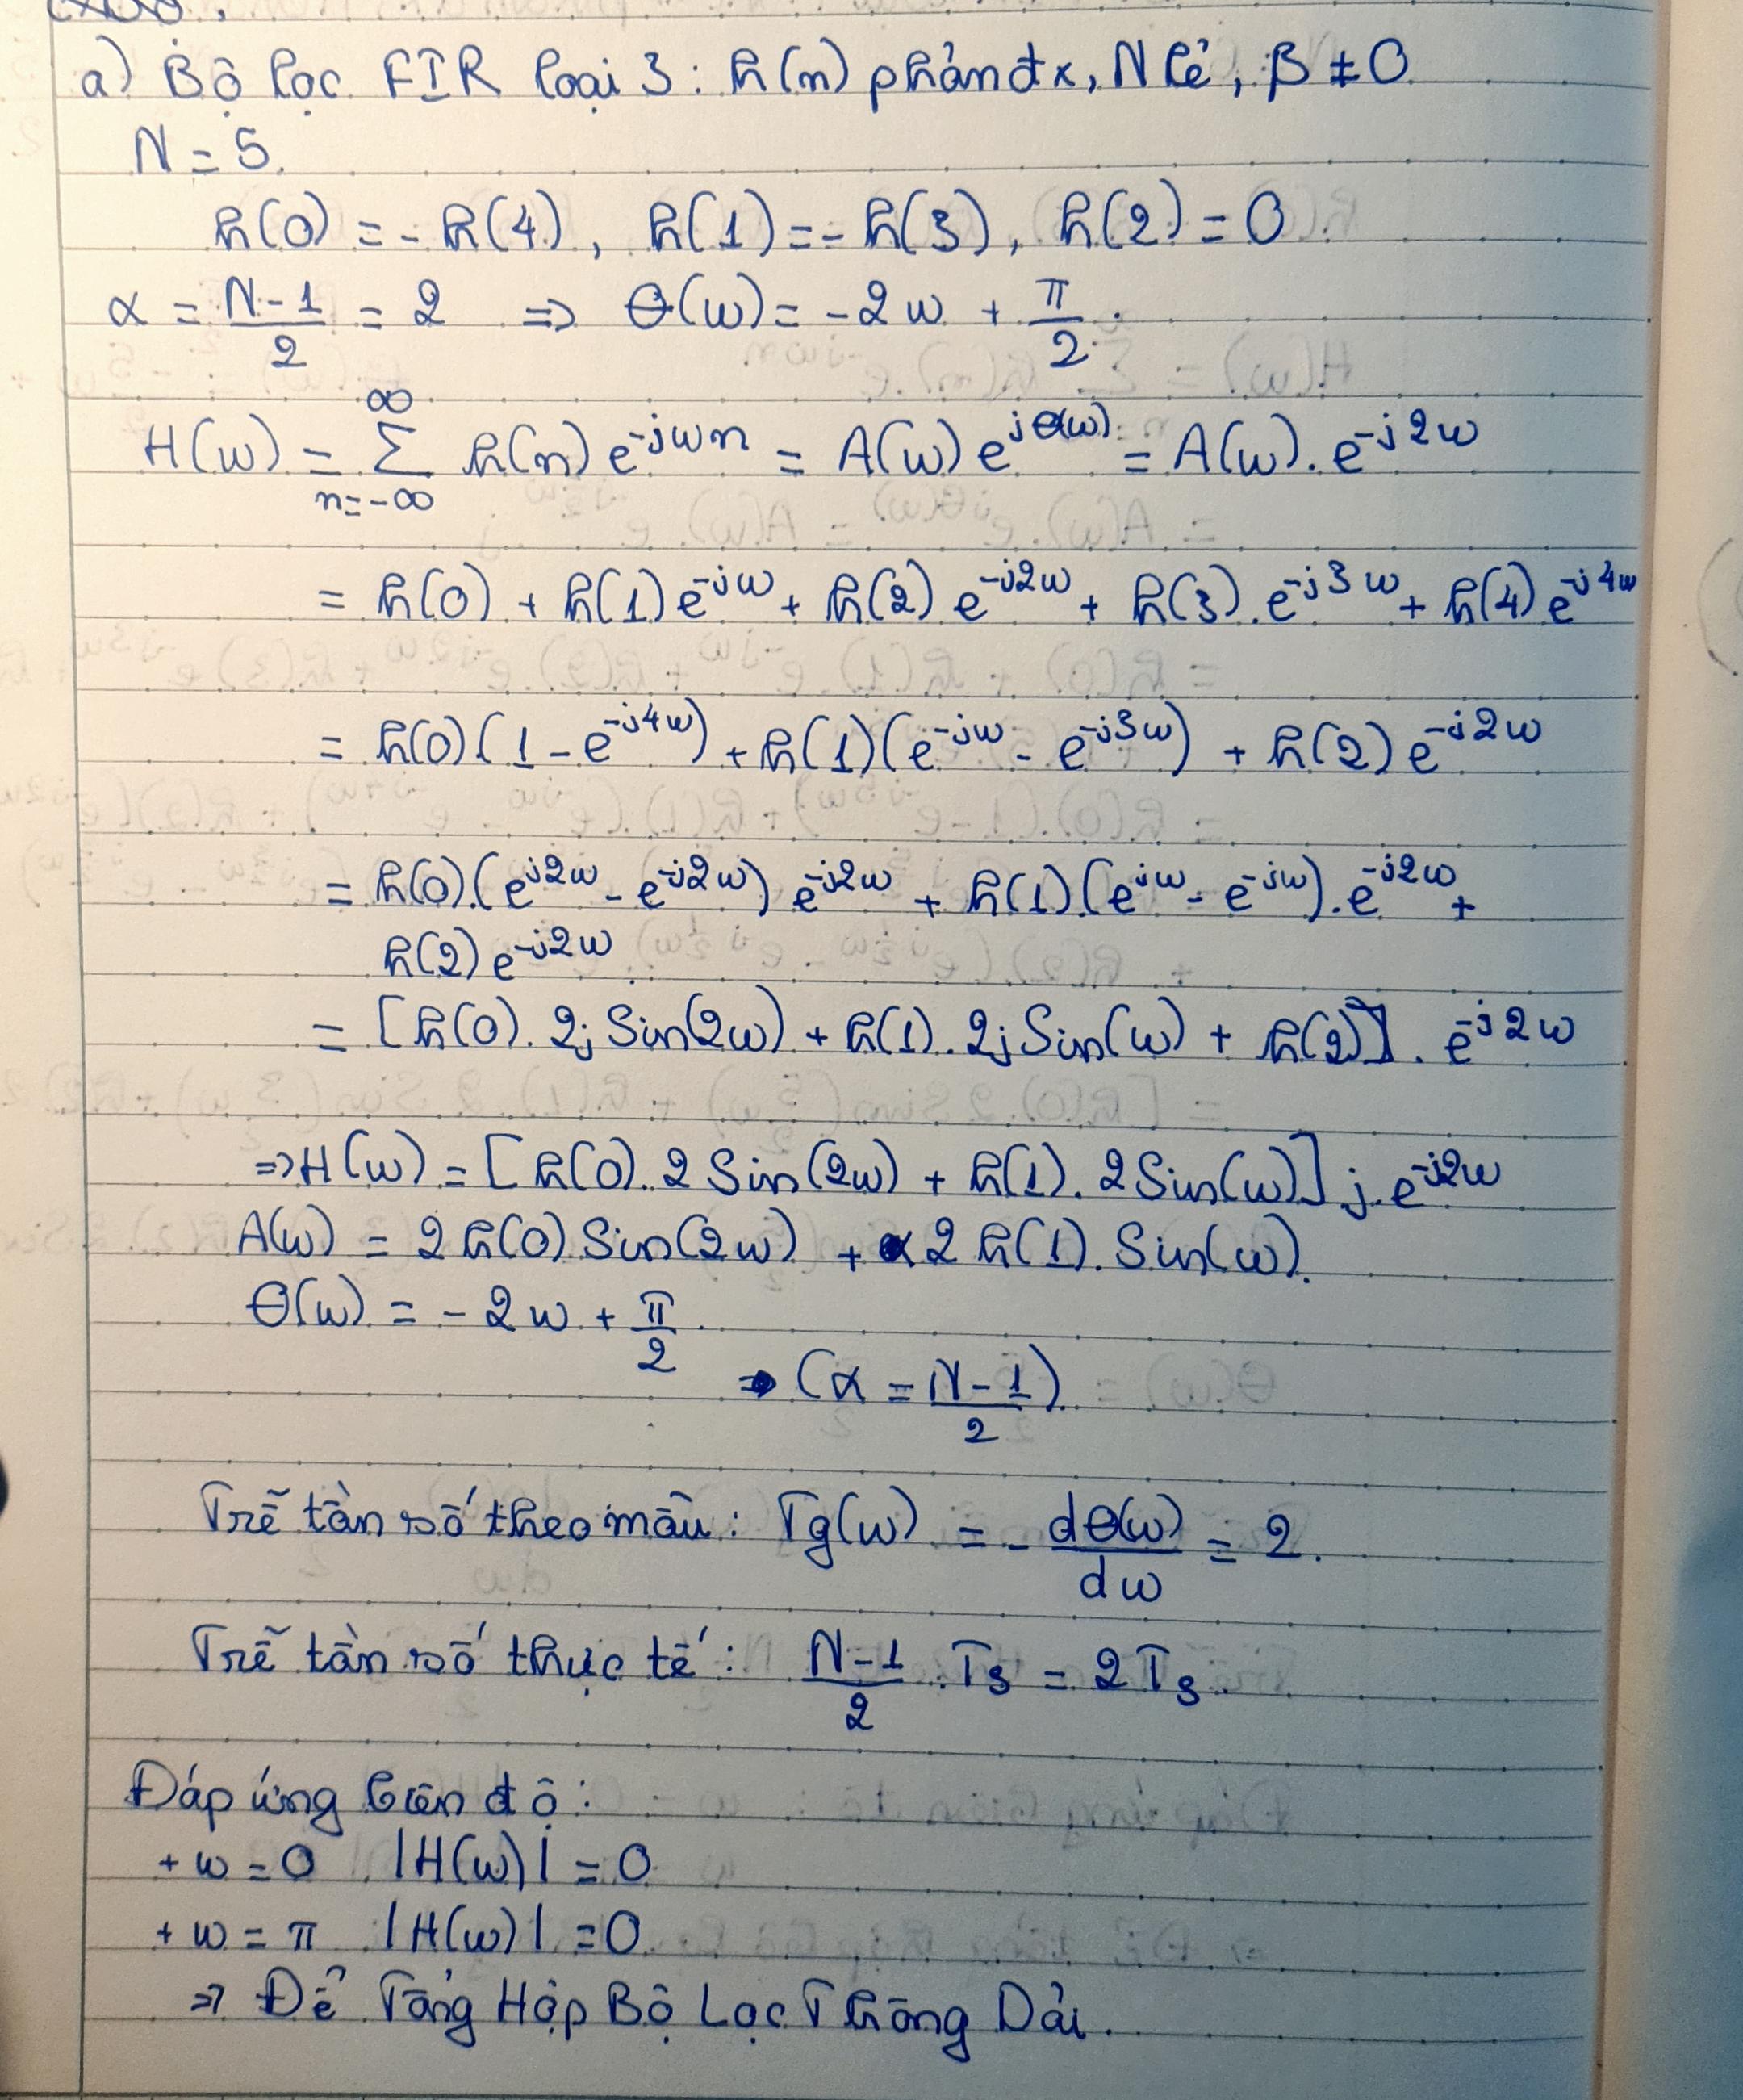 a) Bộ lọc FIR loại 3: h(n) phản đx, N lẻ, β ≠ 0
N = 5.
h(0) = - h(4), h(1) = - h(3), h(2) = 0
α = (N-1)/2 = 2 => θ(ω) = -2ω + π/2.
H(ω) = Σ_{n=-∞}^{∞} h(n) e^{-jωn} = A(ω) e^{jθ(ω)} = A(ω). e^{-j2ω}
= h(0) + h(1) e^{-jω} + h(2) e^{-j2ω} + h(3). e^{-j3ω} + h(4) e^{-j4ω}
= h(0) (1 - e^{-j4ω}) + h(1) (e^{-jω} - e^{-j3ω}) + h(2) e^{-j2ω}
= h(0).(e^{j2ω} - e^{-j2ω}) e^{-j2ω} + h(1).(e^{jω} - e^{-jω}). e^{-j2ω} +
h(2) e^{-j2ω}
= [h(0). 2j Sin(2ω) + h(1). 2j Sin(ω) + h(2)]. e^{-j2ω}
=> H(ω) = [h(0). 2 Sin(2ω) + h(1). 2 Sin(ω)] j. e^{-j2ω}
A(ω) = 2 h(0) Sin(2ω) + 2 h(1). Sin(ω).
θ(ω) = - 2ω + π/2.
→ (α = (N-1)/2)
Trễ tần số theo mẫu: Tg(ω) = - dθ(ω)/dω = 2.
Trễ tần số thực tế: (N-1)/2 . Ts = 2Ts.
Đáp ứng biên độ:
+ ω = 0 |H(ω)| = 0
+ ω = π |H(ω)| = 0
=> Để Tổng Hợp Bộ Lọc Thông Dải.